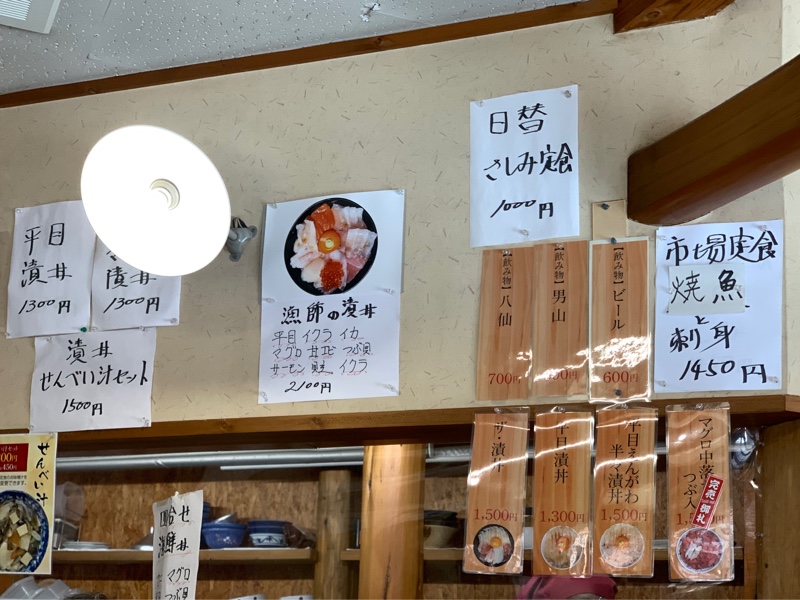 平目
漬丼
1300円
漬丼
1300円
漬丼
せんべい汁セット
1500円
漁師の漬丼
平目 イクラ イカ
マグロ 甘エビ つぶ貝
サーモン イクラ
2100円
日替
さしみ定食
1000円
【飲み物】八仙
700円
【飲み物】男山
【飲み物】ビール
600円
市場定食
焼魚
と
刺身
1450円
漬丼
1,500円
平目漬丼
1,300円
平目えんがわ
半々漬丼
1,500円
マグロ中落
つぶ入
完売
御礼
せんべい汁
450円
せ
海鮮丼
マグロ
つぶ貝